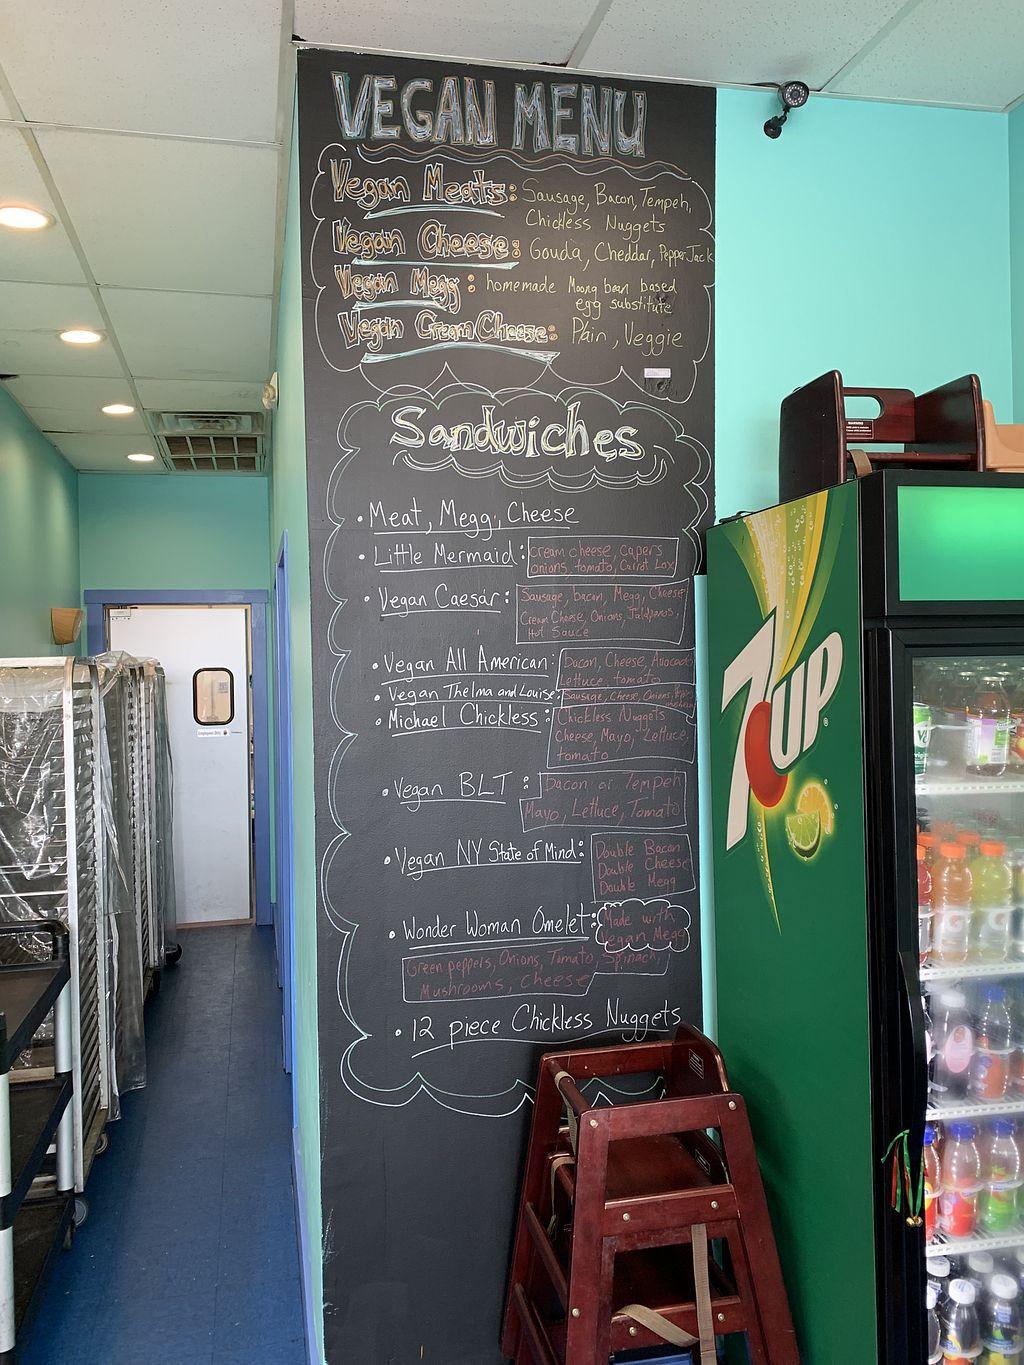 VEGAN MENU
Vegan Meats: Sausage, Bacon, Tempeh,
Chickless Nuggets
Vegan Cheese: Gouda, Cheddar, PepperJack
Vegan Megg: homemade Moong bean based
egg substitute
Vegan Cream Cheese: Plain, Veggie
Sandwiches
• Meat, Megg, Cheese
• Little Mermaid: cream cheese, capers
onions, tomato, Carrot Lox
• Vegan Caesar: Sausage, bacon, Megg, Cheese
Cream Cheese, Onions, Jalapenos,
Hot Sauce
• Vegan All American: Bacon, Cheese, Avocado
Lettuce, tomato
• Vegan Thelma and Louise: Sausage, Cheese, Onions,
• Michael Chickless: Chickless Nuggets
Cheese, Mayo, Lettuce,
tomato
• Vegan BLT: bacon or Tempeh
Mayo, Lettuce, Tomato
• Vegan NY State of Mind: Double Bacon
Double Cheese
Double Megg
• Wonder Woman Omelet: Made with
Vegan Megg
Green peppers, Onions, Tomato, Spinach,
Mushrooms, Cheese
• 12 piece Chickless Nuggets
7UP
WARNING
Employees Only